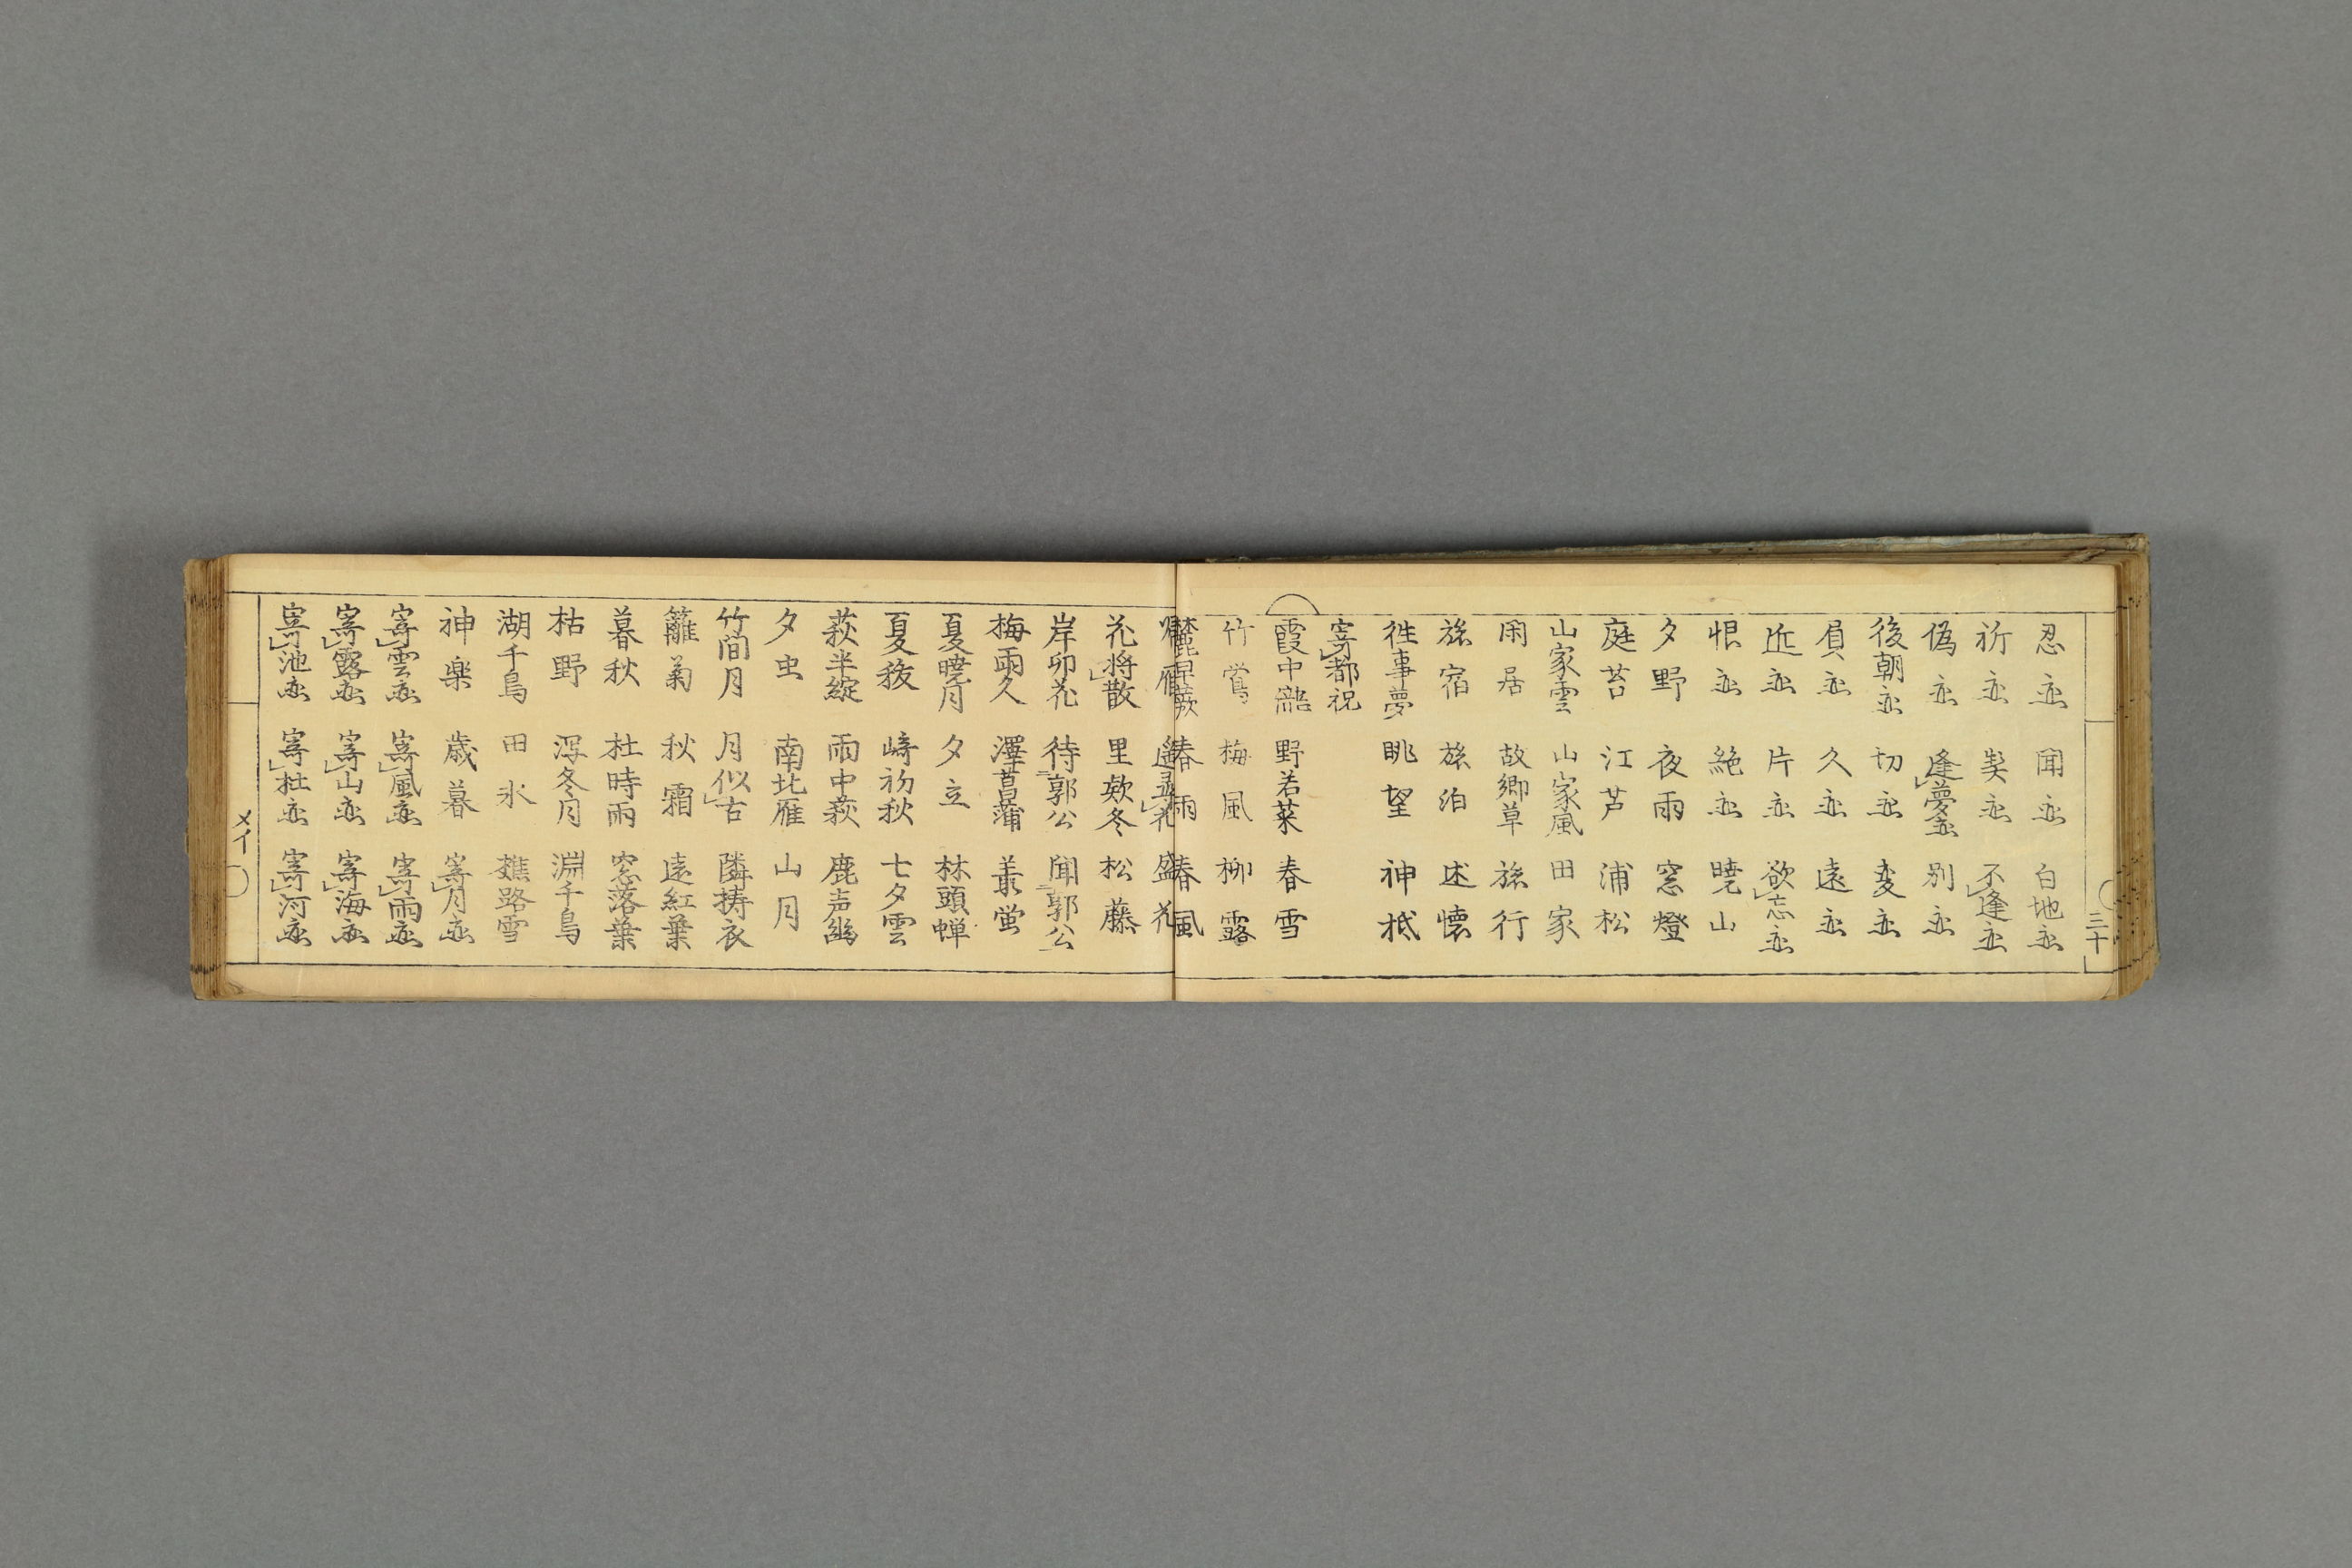 三十
忍恋 聞恋 白地恋
祈恋 契恋 不逢恋
偽恋 逢夢恋 別恋
後朝恋 切恋 変恋
負恋 久恋 遠恋
近恋 片恋 欲忘恋
恨恋 絶恋 暁山
夕野 夜雨 窓燈
庭苔 江芦 浦松
山家雲 山家風 田家
閑居 故郷草 旅行
旅宿 旅泊 述懐
往事夢 眺望 神祇
寄都祝
霞中瀧 野若菜 春雪
竹鶯 梅風 柳露
麓早蕨 春雨 春風
帰雁 盛花
花将散 里欵冬 松藤
岸卯花 待郭公 聞郭公
梅雨久 澤菖蒲 叢蛍
夏暁月 夕立 林頭蝉
夏祓 崎初秋 七夕雲
萩半綻 雨中萩 鹿声幽
夕虫 南北雁 山月
竹間月 月似古 隣擣衣
籬菊 秋霜 遠紅葉
暮秋 杜時雨 窓落葉
枯野 冱冬月 淵千鳥
湖千鳥 田氷 樵路雪
神楽 歳暮 寄月恋
寄雲恋 寄風恋 寄雨恋
寄露恋 寄山恋 寄海恋
寄池恋 寄杜恋 寄河恋
メイ